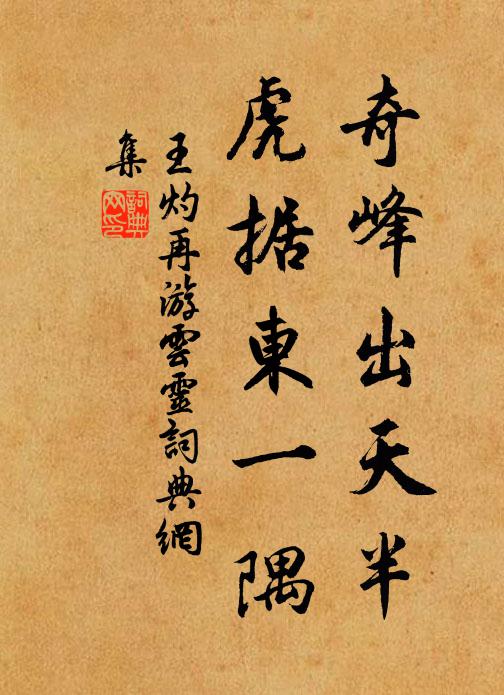 奇峰出天半
虎据東一隅
王灼再游雲靈詞典網
集
詞典
网印